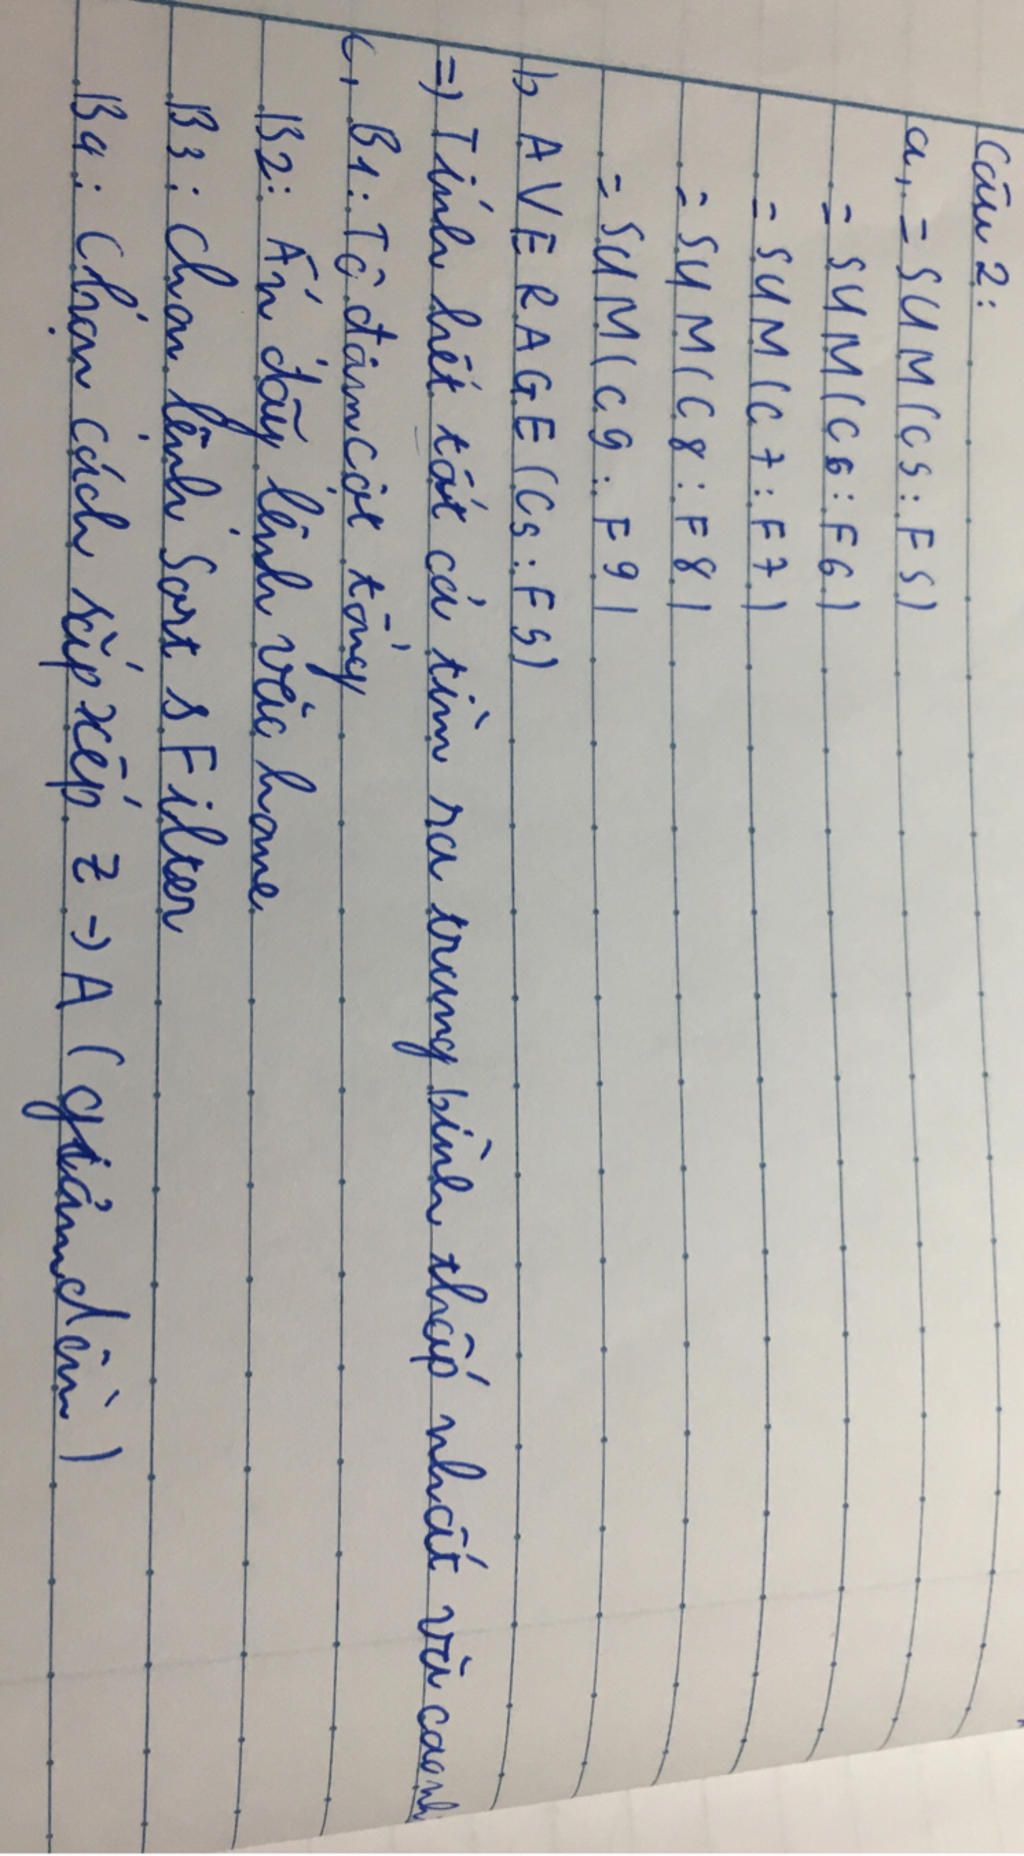 Câu 2:
a, = SUM(C5:F5)
= SUM(C6:F6)
= SUM(C7:F7)
= SUM(C8:F8)
= SUM(C9:F9)
b AVERAGE(C5:F5)
=) Tính hết tất cả tìm ra trung bình thấp nhất và cao nh
c, B1: Tô đậm cột tổng
B2: Ấn dãy lệnh vào home
B3: Chọn lệnh Sort s Filter
B4: Chọn cách sắp xếp Z -> A (giảm dần)